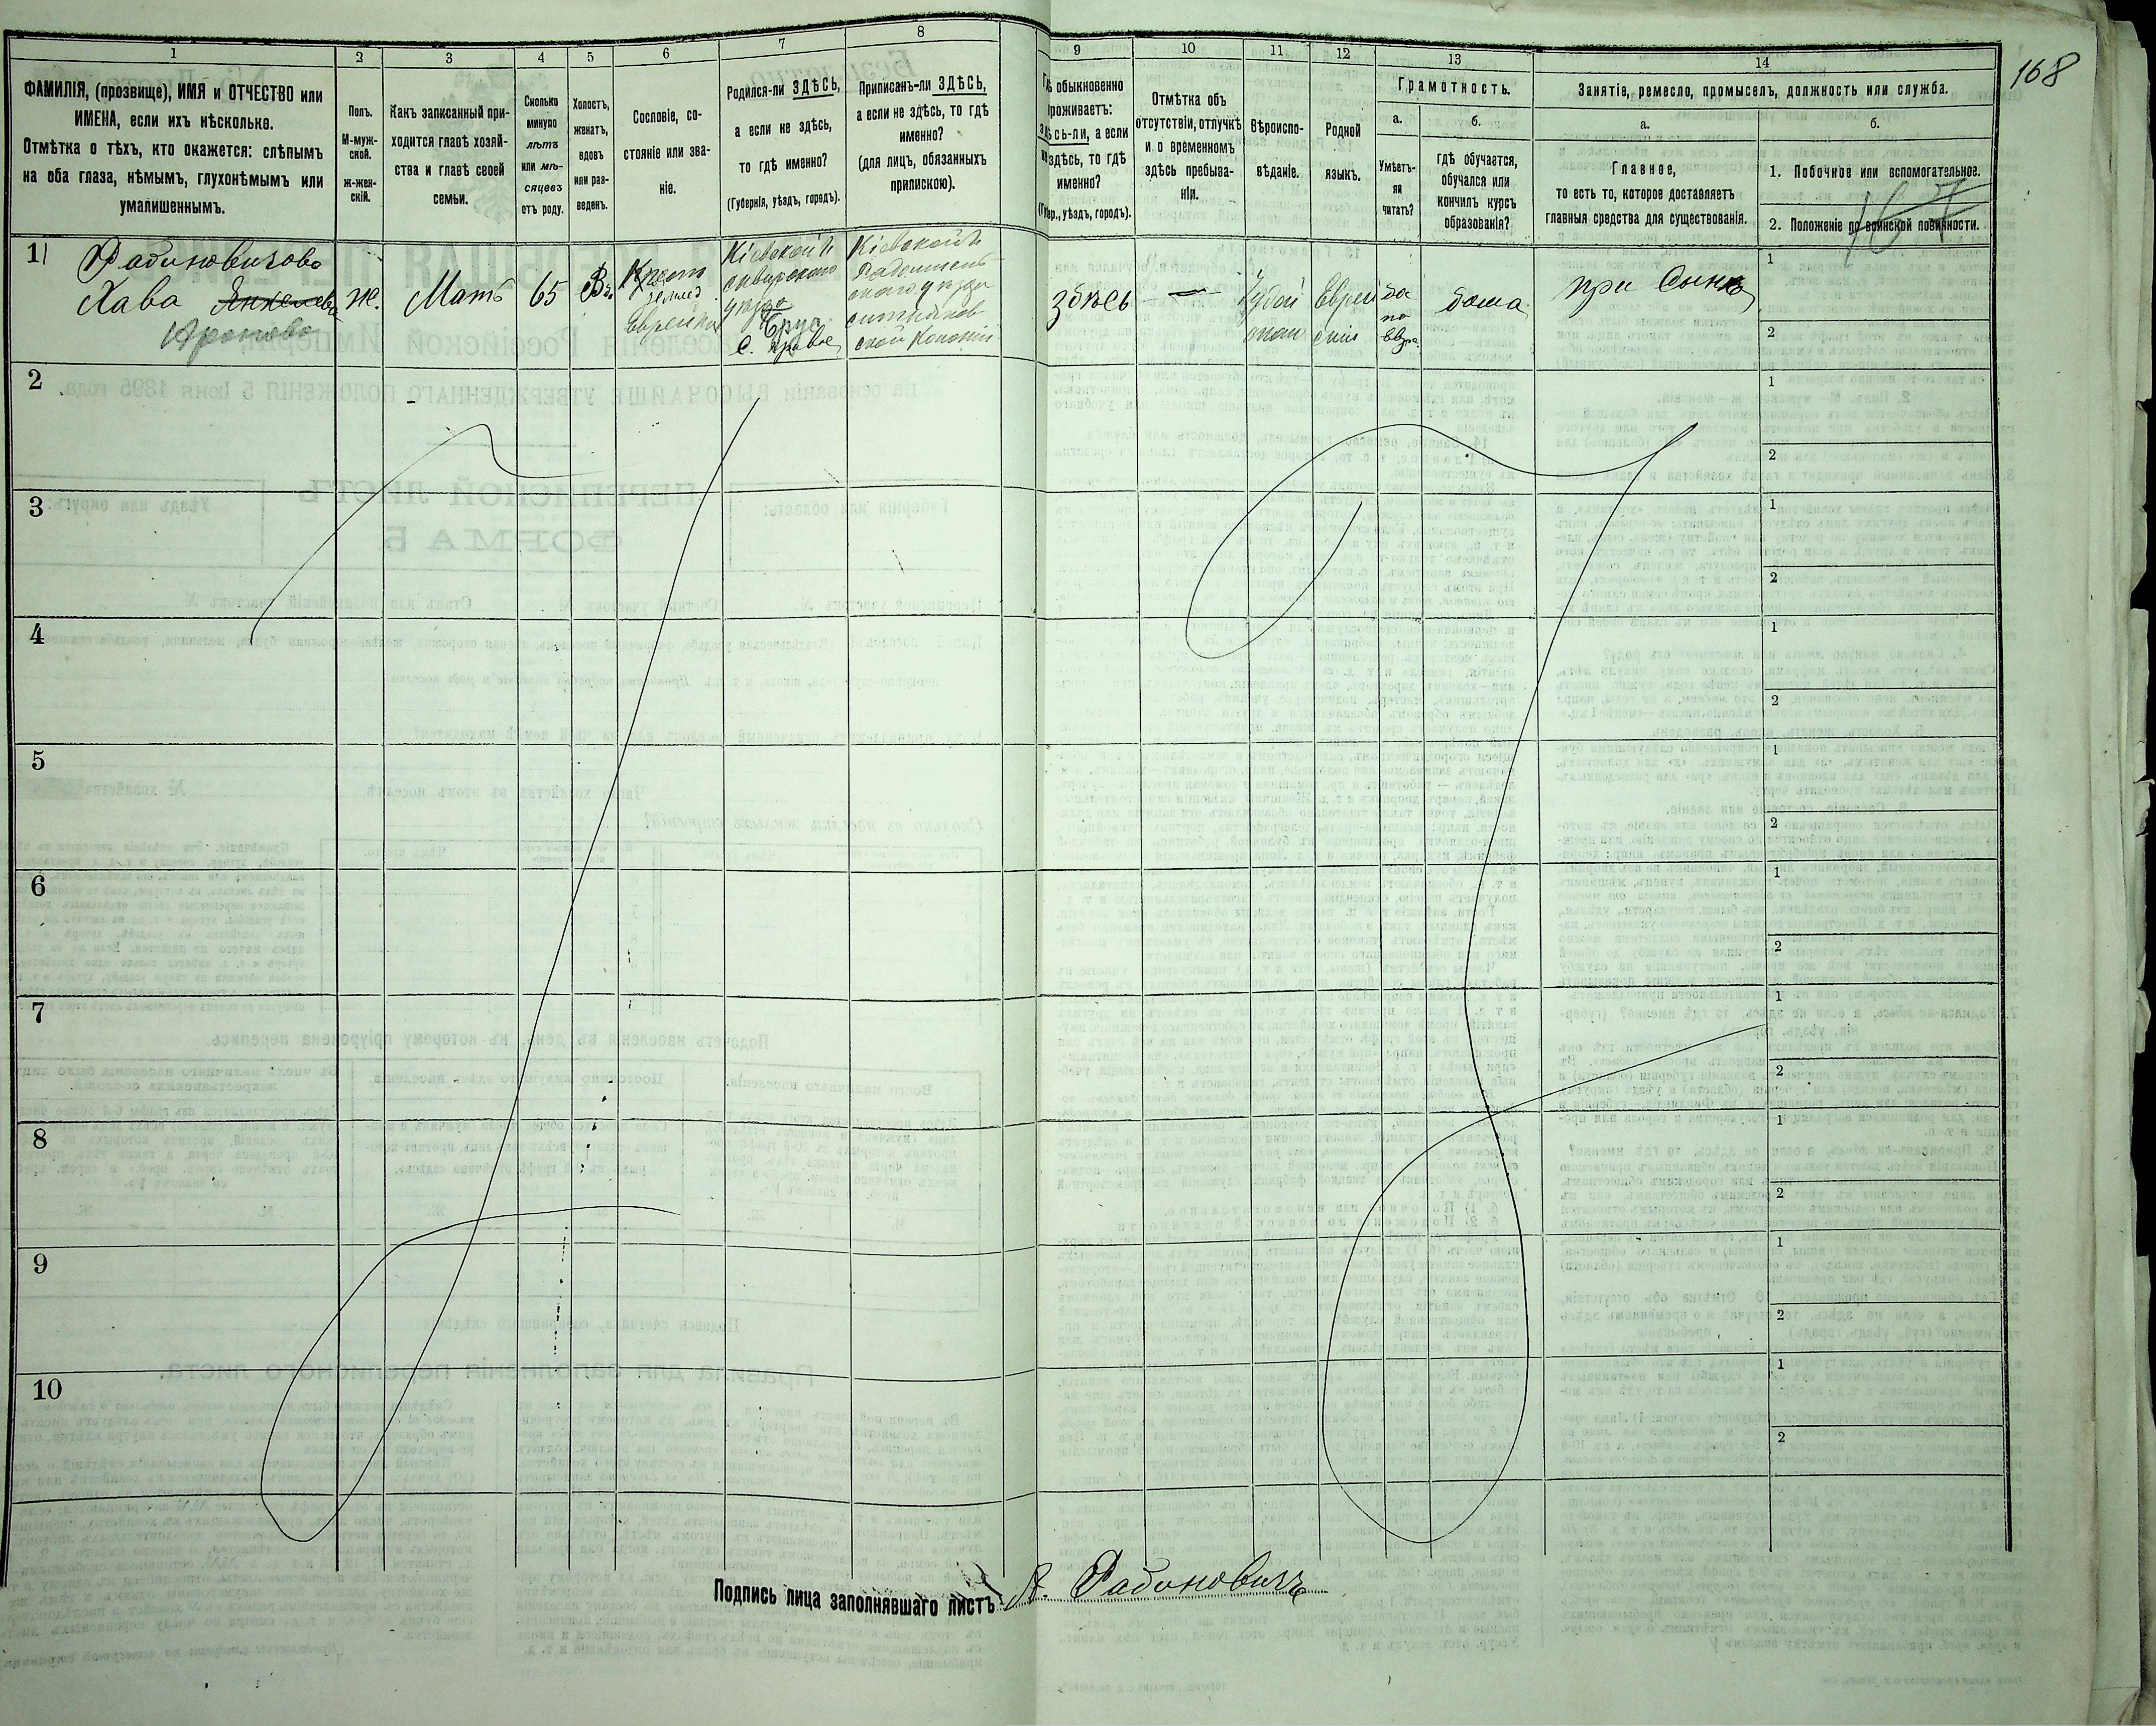 1
2
3
4
5
6
7
8
9
10
11
12
13
14
168
ФАМИЛІЯ, (прозвище), ИМЯ и ОТЧЕСТВО или
ИМЕНА, если ихъ нѣсколько.
Отмѣтка о тѣхъ, кто окажется: слѣпымъ
на оба глаза, нѣмымъ, глухонѣмымъ или
умалишеннымъ.
Полъ.
М-муж-
ской.
ж-жен-
скій.
Какъ записанный при-
ходится главѣ хозяй-
ства и главѣ своей
семьи.
Сколько
минуло
лѣтъ
или мѣ-
сяцевъ
отъ роду.
Холостъ,
женатъ,
вдовъ
или раз-
веденъ.
Сословіе, со-
стояніе или зва-
ніе.
Родился-ли ЗДѢСЬ,
а если не здѣсь,
то гдѣ именно?
(Губернія, уѣздъ, городъ).
Приписанъ-ли ЗДѢСЬ,
а если не здѣсь, то гдѣ
именно?
(для лицъ, обязанныхъ
припискою).
Гдѣ обыкновенно
проживаетъ:
здѣсь-ли, а если
не здѣсь, то гдѣ
именно?
(Губер., уѣздъ, городъ).
Отмѣтка объ
отсутствіи, отлучкѣ
и о временномъ
здѣсь пребыва-
ніи.
Вѣроиспо-
вѣданіе.
Родной
языкъ.
Грамотность.
а.
б.
Умѣетъ-
ли
читать?
гдѣ обучается,
обучался или
кончилъ курсъ
образованія?
Занятіе, ремесло, промыселъ, должность или служба.
а.
б.
Главное,
то есть то, которое доставляетъ
главныя средства для существованія.
1. Побочное или вспомогательное.
2. Положеніе по воинской повинности.
167
1
Рабиновичова
Хава Янкелева
Аронова
Ж.
Мать
65
Вд.
Крест
Еврейка
Кіевской
сквирского
уѣзда
с.
Кіевской
Радомысль
скаго уѣзда
ской Колоніи
здѣсь
—
Іудей
Еврей
скій
да
по
Евр.
дома
при Сынѣ
1
2
2
1
2
3
1
2
4
1
2
5
1
2
6
1
2
7
1
2
8
1
2
9
1
2
10
1
2
Подпись лица заполнявшаго листъ А. Рабиновичъ